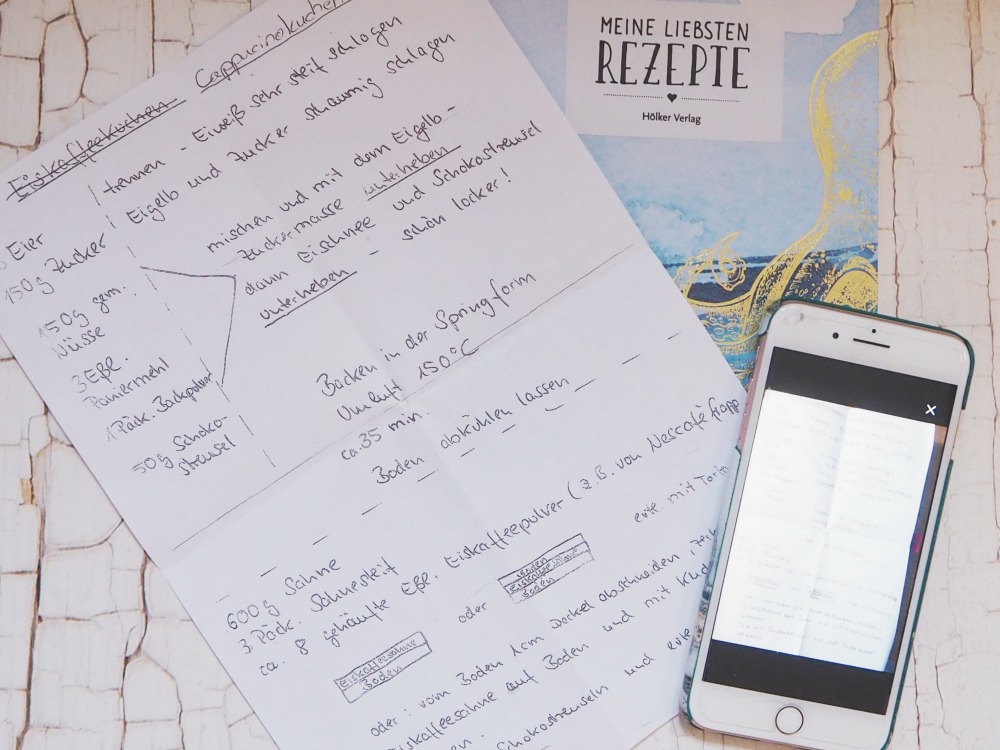 Eiskaffeekuchen Cappucinokuchen
Eier
trennen - Eiweiß sehr steif schlagen
150g Zucker
Eigelb und Zucker schaumig schlagen
150g gem.
Nüsse
3 Eßl.
Paniermehl
1 Päck. Backpulver
mischen und mit dem Eigelb-
Zuckermasse unterheben
dann Eischnee und Schokostreusel
unterheben - schön locker!
50g Schoko-
streusel
Backen in der Springform
Umluft 150°C
ca. 35 min.
Boden abkühlen lassen
600g Sahne
3 Päck. Sahnesteif
ca. 8 gehäufte Eßl. Eiskaffeepulver (z.B. von Nescafé frapp
Eiskaffeesahne
Boden
oder
Boden
Eiskaffeesahne
Boden
evtl. mit
oder: vom Boden 1cm Deckel abschneiden,
Eiskaffeesahne auf Boden und mit
Schokostreuseln und
MEINE LIEBSTEN
REZEPTE
Hölker Verlag